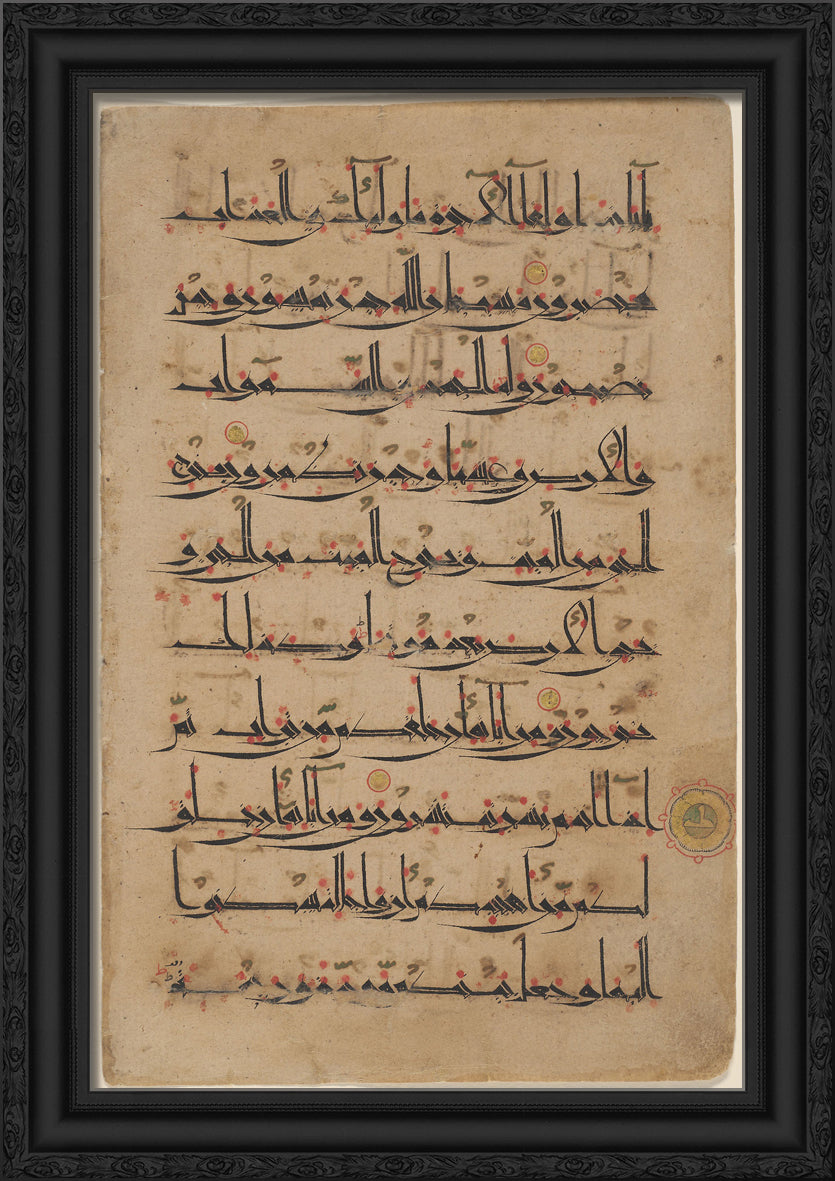 بآياتنا ولقاء الآخرة فأولئك في العذاب
محضرون فسبحن الله حين تمسون وحين
تصبحون وله الحمد في السموات
والأرض وعشيا وحين تظهرون يخرج
الحي من الميت ويخرج الميت من الحي و
يحيي الأرض بعد موتها وكذلك
تخرجون ومن آياته أن خلقكم من تراب ثم
إذا أنتم بشر تنتشرون ومن آياته أن خلق
لكم من أنفسكم أزواجا لتسكنوا
إليها وجعل بينكم مودة ورحمة